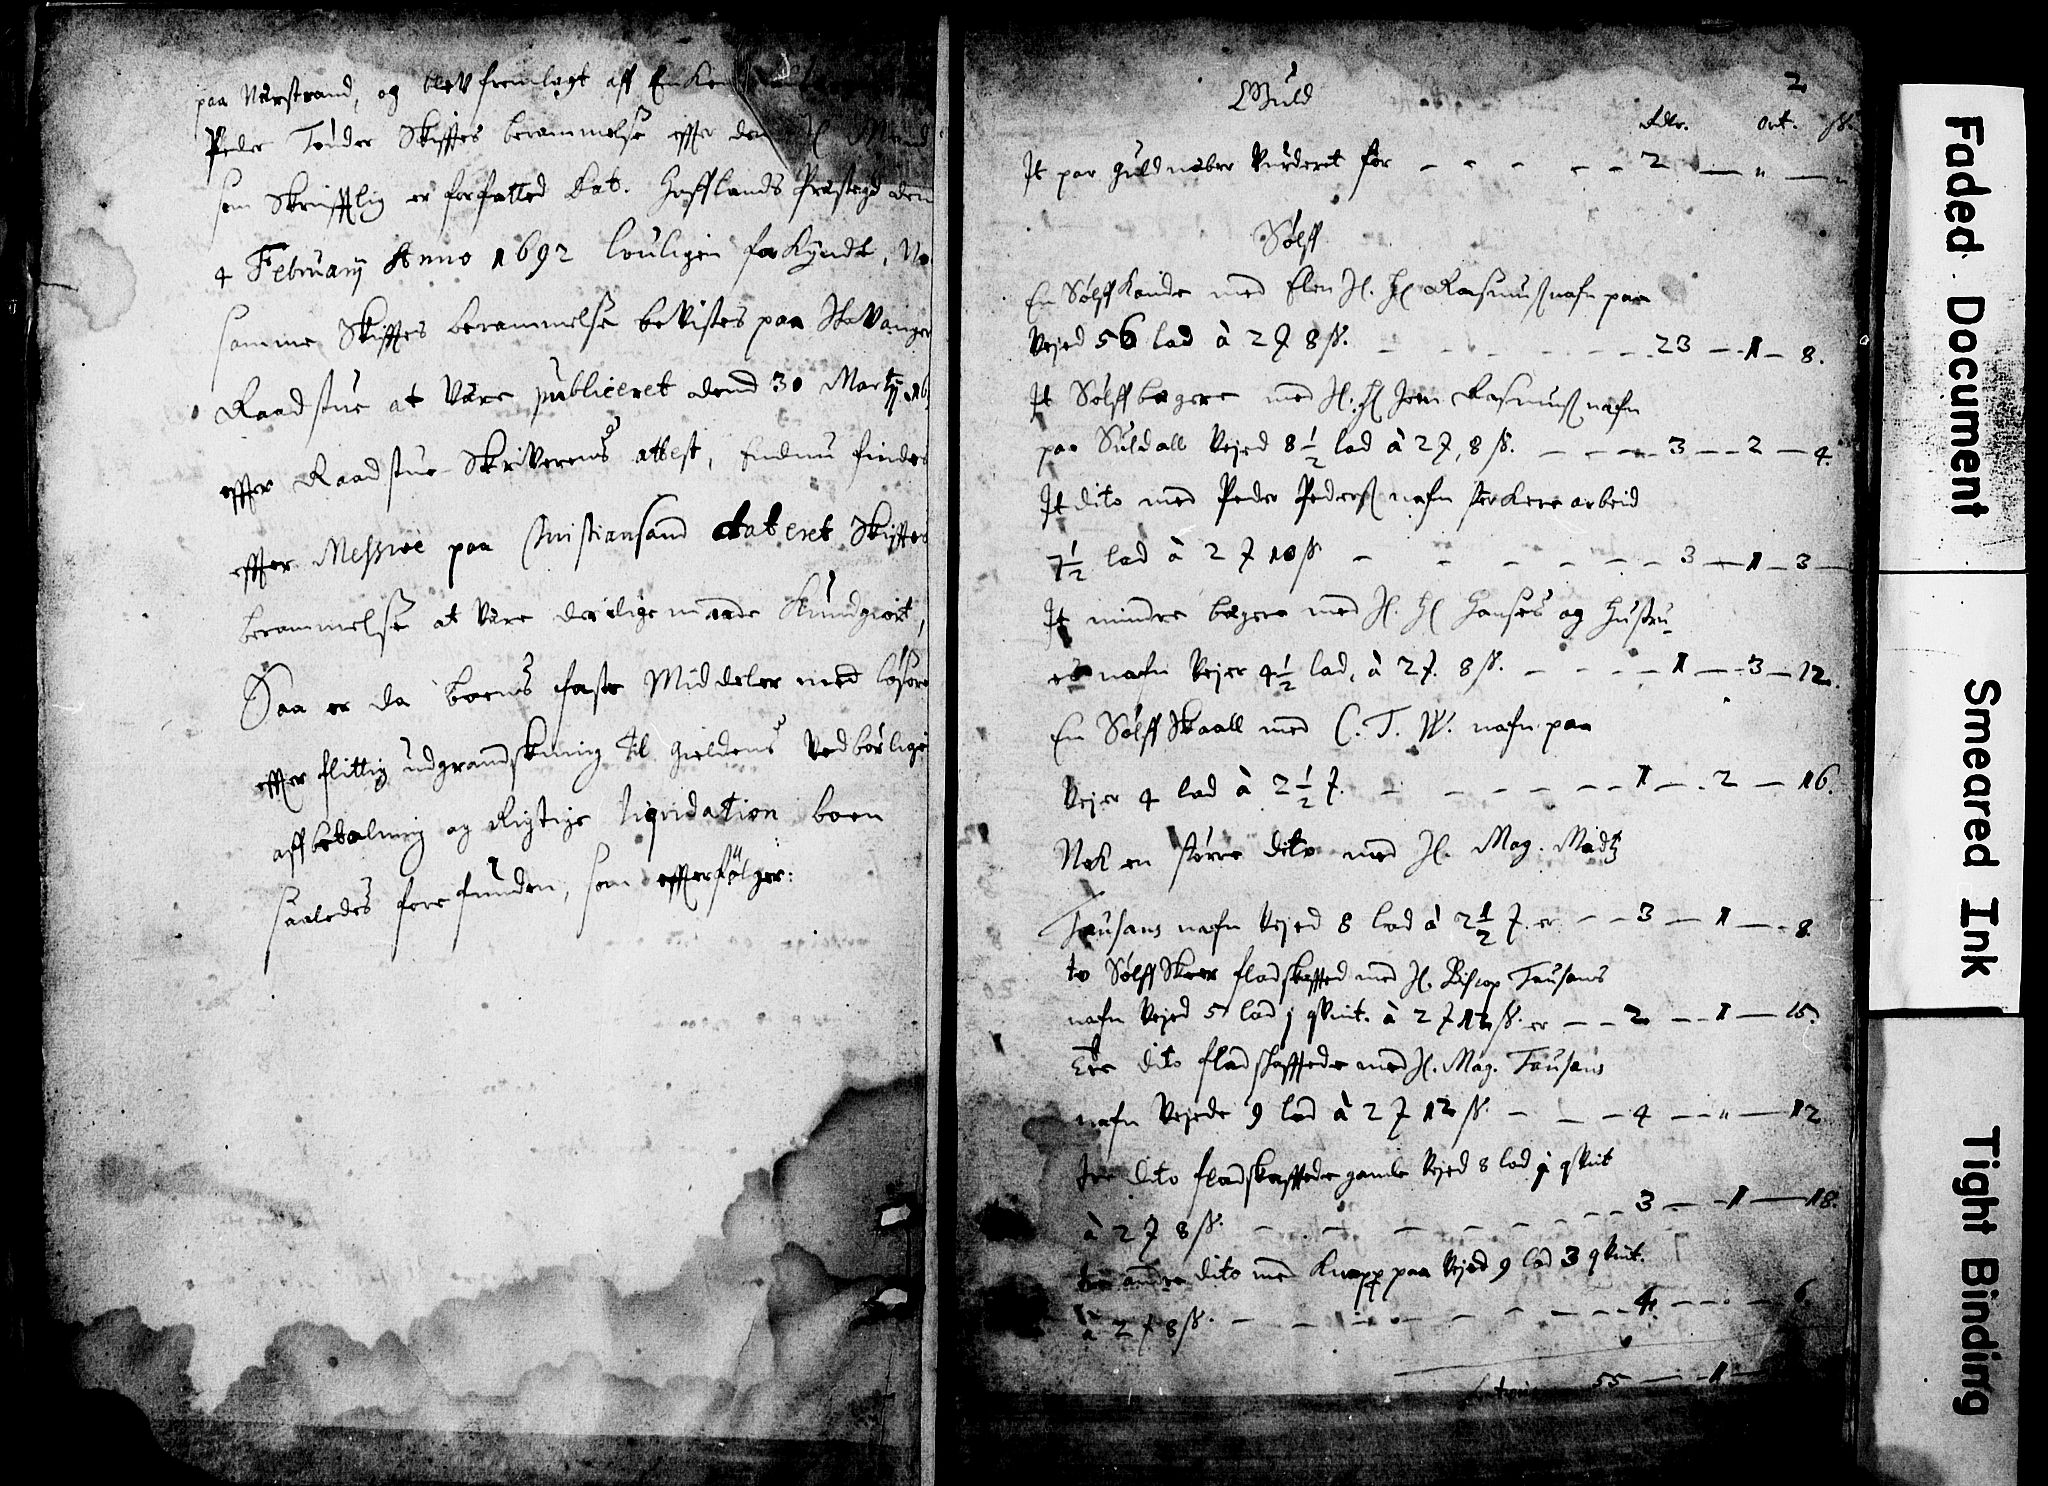 paa Nærstrand, og blev fremlagt aff Enken
Peder Tønder Skifftes berammelse effter den
som Skrifftlig er forfatted Dat. Hofflands Præstegd den
4 Februarij Anno 1692 louligen forkyndt,
samme Skifftes berammelse bevistes paa Stavanger
Raadstue at være publiceret dend 30 Martij 16
effter Raadstue Skriverens attest, Endnu findes
effter Missive paa Christiansand dateret Skifftes
berammelse at være deslige maade kundgiort,
Saa er da boens faste Middeler med løsøre
effter flittig udgrandskning til gieldens Vedbørlige
affbetalning og Rigtige liqvidation boen
saaledes forefunden, som effterfølger:
2
Guld
Rdlr. ort. ß.
It par guld naber Vurderet for — 2 — " — "
Sølff
En Sølff Kande med Elen Sl. Hr Rasmusß nafn paa
Vejed 56 lod à 2 ₰ 8 ß. — 23 — 1 — 8.
It Sølff begere med Sl. Hr Jen Rasmusß nafn
paa Suldall Vejed 8 1/2 lod à 2 ₰, 8 ß. — 3 — 2 — 4.
It dito med Peder Pedersß nafn sterkere arbeid
7 1/2 lod à 2 ₰ 10 ß — 3 — 1 — 3 —
It mindre begere med Sl. Hr Hanses og Hustru
es nafn Vejer 4 1/2 lod, à 2 ₰. 8 ß. — 1 — 3 — 12.
En Sølff Skaall med C. T. W. nafn paa
Vejer 4 lod à 2 1/2 ₰. — 1 — 2 — 16.
Nok en større dito med Sl. Mag. Madtz
Tausans nafn Vejed 8 lod à 2 1/2 ₰. er — 3 — 1 — 8
to Sølff Skeer fladskafftted med Sl. Biscop Tausans
nafn Vejed 5 lod j qvint. à 2 ₰ 12 ß. er — 2 — 1 — 15.
Tre dito flad skafftede med Sl. Mag. Tausans
nafn Vejede 9 lod à 2 ₰ 12 ß. — 4 — " — 12
tre dito fladskafftede gamle Vejed 8 lod j qvint
à 2 ₰ 8 ß. — 3 — 1 — 18.
tre andre dito med Knapp paa Vejed 9 lod 3 qvint.
à 2 ₰ 8 ß. — 4. — — 6.
55 — 1 —
Faded Document
Smeared Ink
Tight Binding